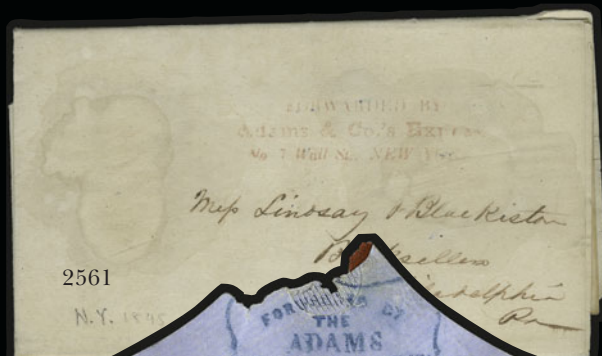 FORWARDED BY
Adams & Co.'s Express
No 7 Wall St., NEW YORK
Mess Lindsay & Blackiston
Booksellers
Philadelphia
Pa
2561
N.Y. 1845
FORWARDED BY
THE
ADAMS